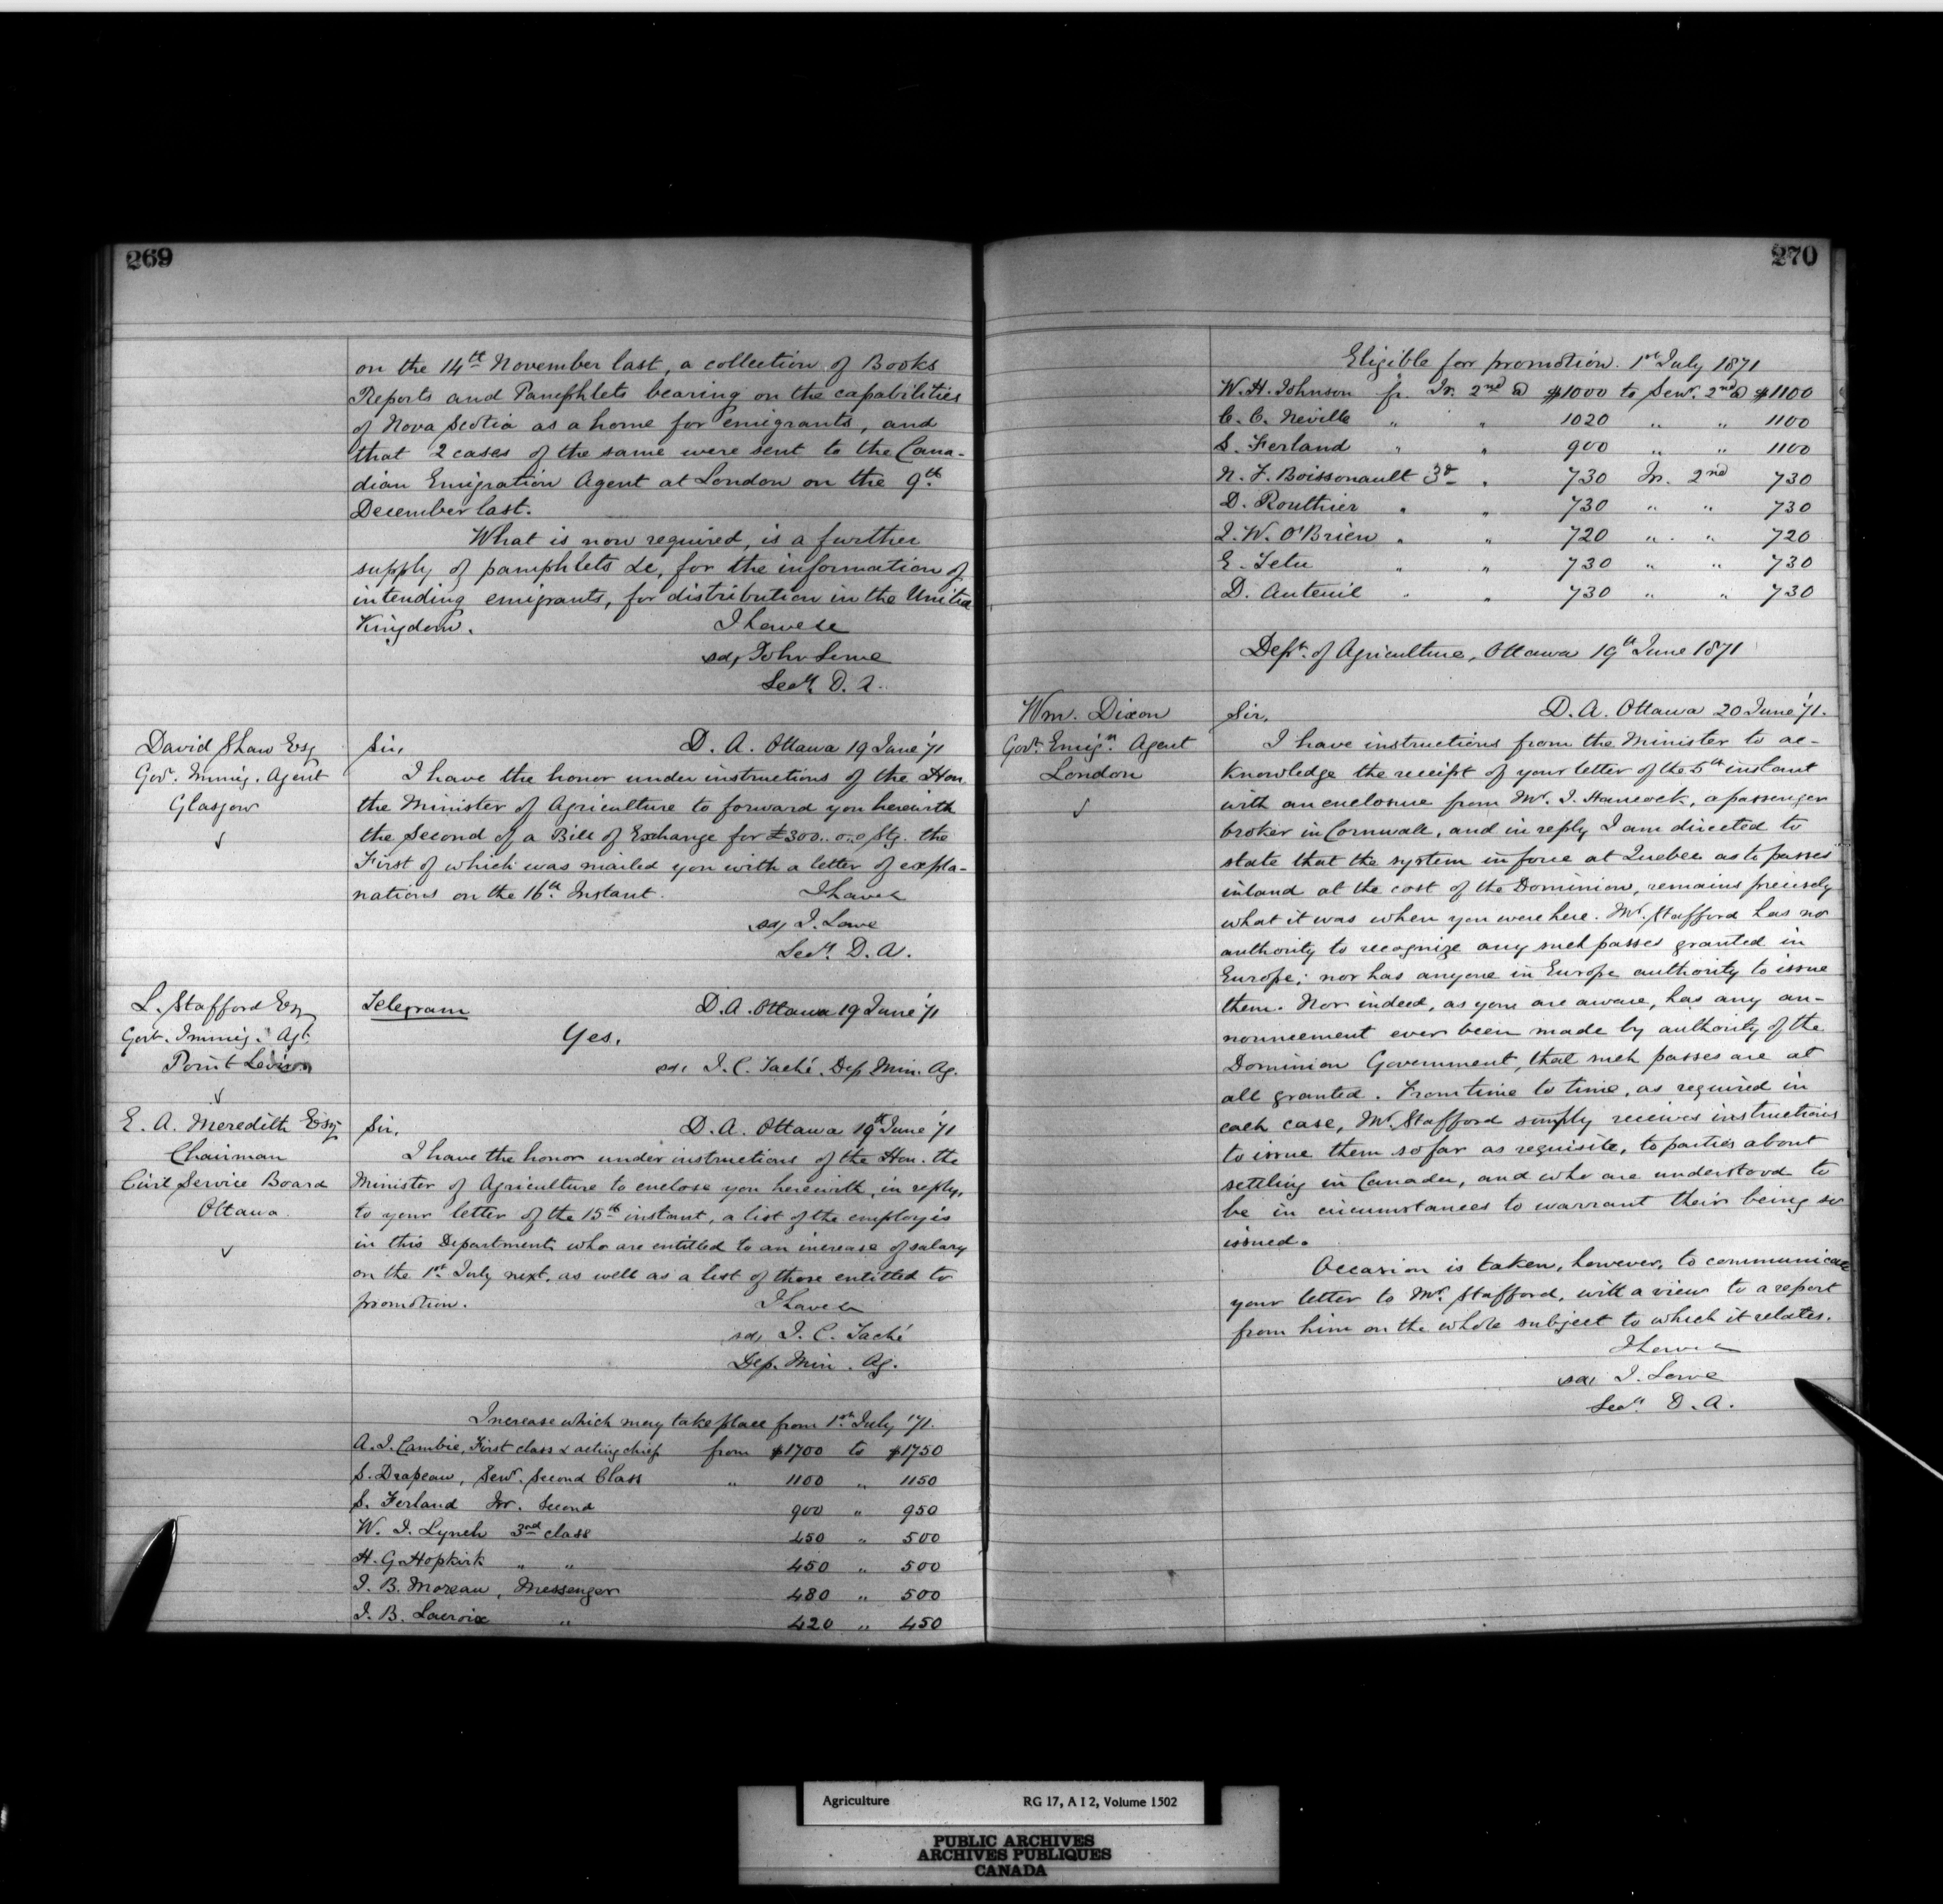 269
on the 14th November last, a collection of Books
Reports and Pamphlets bearing on the capabilities
of Nova Scotia as a home for emigrants, and
that 2 cases of the same were sent to the Cana-
dian Emigration Agent at London on the 9th
December last.
What is now required, is a further
supply of pamphlets &c, for the information of
intending emigrants, for distribution in the United
Kingdom. I have &c
sd, John Lowe
Secy. D. A.
David Shaw Esq
Govt. Immig. Agent
Glasgow
Sir, D. A. Ottawa 19 June '71
I have the honor under instructions of the Hon.
the Minister of Agriculture to forward you herewith
the Second of a Bill of Exchange for £300..0..0 Stg. the
First of which was mailed you with a letter of expla-
nations on the 16th Instant. I have &c
sd, J. Lowe
Secy. D. A.
L. Stafford Esq
Govt. Immig. Agt.
Point Levis
Telegram D. A. Ottawa 19 June '71
Yes.
sd, J. C. Taché Dep. Min. Ag.
E. A. Meredith Esq
Chairman
Civil Service Board
Ottawa
Sir, D. A. Ottawa 19th June '71
I have the honor under instructions of the Hon. the
Minister of Agriculture to enclose you herewith, in reply,
to your letter of the 15th instant, a list of the employés
in this Department who are entitled to an increase of salary
on the 1st July next, as well as a list of those entitled to
promotion. I have &c
sd, J. C. Taché
Dep. Min. Ag.
Increase which may take place from 1st July '71.
A. J. Cambie, First class & acting chief from $1700 to $1750
S. Drapeau, Senr. Second Class " 1100 " 1150
S. Ferland Jnr. Second 900 " 950
W. J. Lynch 3rd class 450 " 500
H. G. Hopkirk " " 450 " 500
J. B. Moreau, Messenger 480 " 500
J. B. Lacroix " 420 " 450
270
Eligible for promotion. 1st July 1871
W. H. Johnson fr. Jr. 2nd @ $1000 to Senr. 2nd @ $1100
C. C. Neville " " 1020 " " 1100
S. Ferland " " 900 " " 1100
N. F. Boissonault 3d " 730 Jr. 2nd 730
D. Routhier " " 730 " " 730
J. W. O'Brien " " 720 " " 720
E. Tetu " " 730 " " 730
D. Auteuil " " 730 " " 730
Dept. of Agriculture, Ottawa 19th June 1871
Wm. Dixon
Govt. Emign. Agent
London
Sir, D. A. Ottawa 20 June '71.
I have instructions from the Minister to ac-
knowledge the receipt of your letter of the 5th instant
with an enclosure from Mr. J. Hancock, a passenger
broker in Cornwall, and in reply I am directed to
state that the system in force at Quebec as to passes
inland at the cost of the Dominion, remains precisely
what it was when you were here. Mr. Stafford has no
authority to recognize any such passes granted in
Europe; nor has anyone in Europe authority to issue
them. Nor indeed, as you are aware, has any an-
nouncement ever been made by authority of the
Dominion Government, that such passes are at
all granted. From time to time, as required in
each case, Mr. Stafford simply receives instructions
to issue them so far as requisite, to parties about
settling in Canada, and who are understood to
be in circumstances to warrant their being so
issued.
Occasion is taken, however, to communicate
your letter to Mr. Stafford, with a view to a report
from him on the whole subject to which it relates.
I have &c
sd, J. Lowe
Secy. D. A.
Agriculture RG 17, A I 2, Volume 1502
PUBLIC ARCHIVES
ARCHIVES PUBLIQUES
CANADA